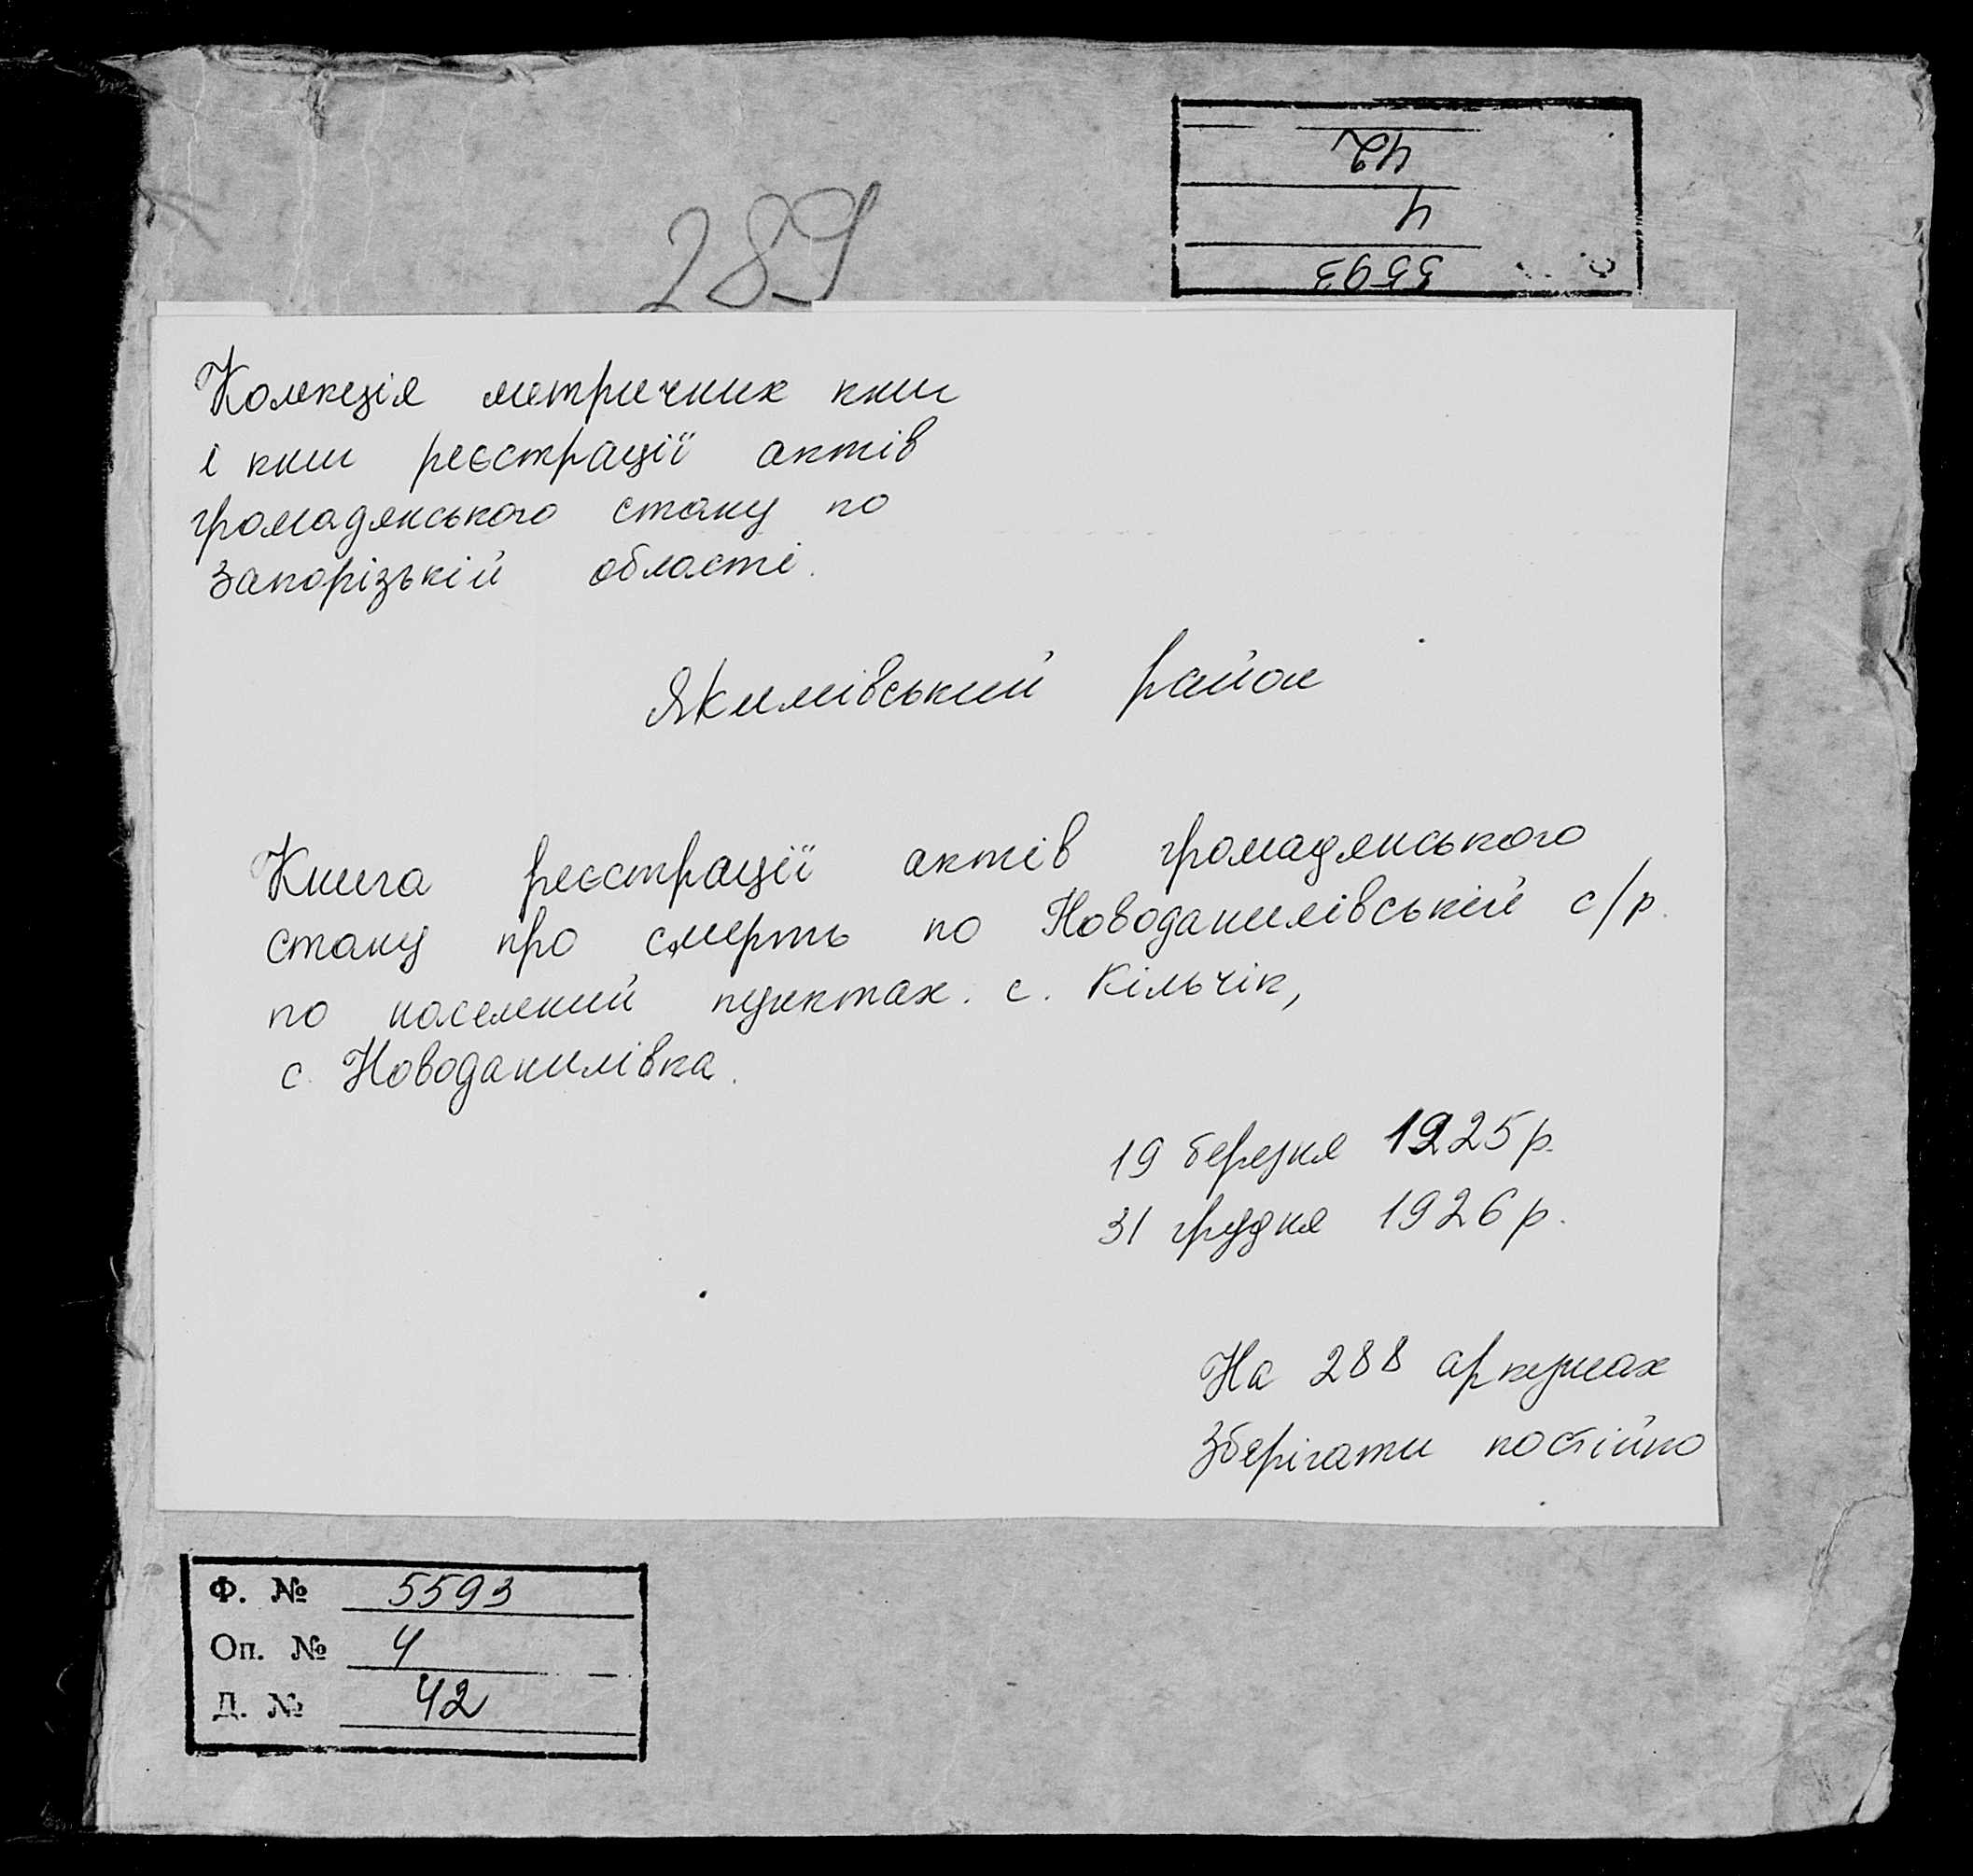 42
4
5593
289
Колекція метричних книг
і книг реєстрації актів
громадянського стану по
Запорізькій області.
Якимівський район
Книга реєстрації актів громадянського
стану про смерть по Новоданилівській с/р.
по населений пунктах. с. Кільчік,
с. Новоданилівка.
19 березня 1925 р.
31 грудня 1926 р.
На 288 аркушах
Зберігати постійно
Ф. № 5593
Оп. № 4
Д. № 42